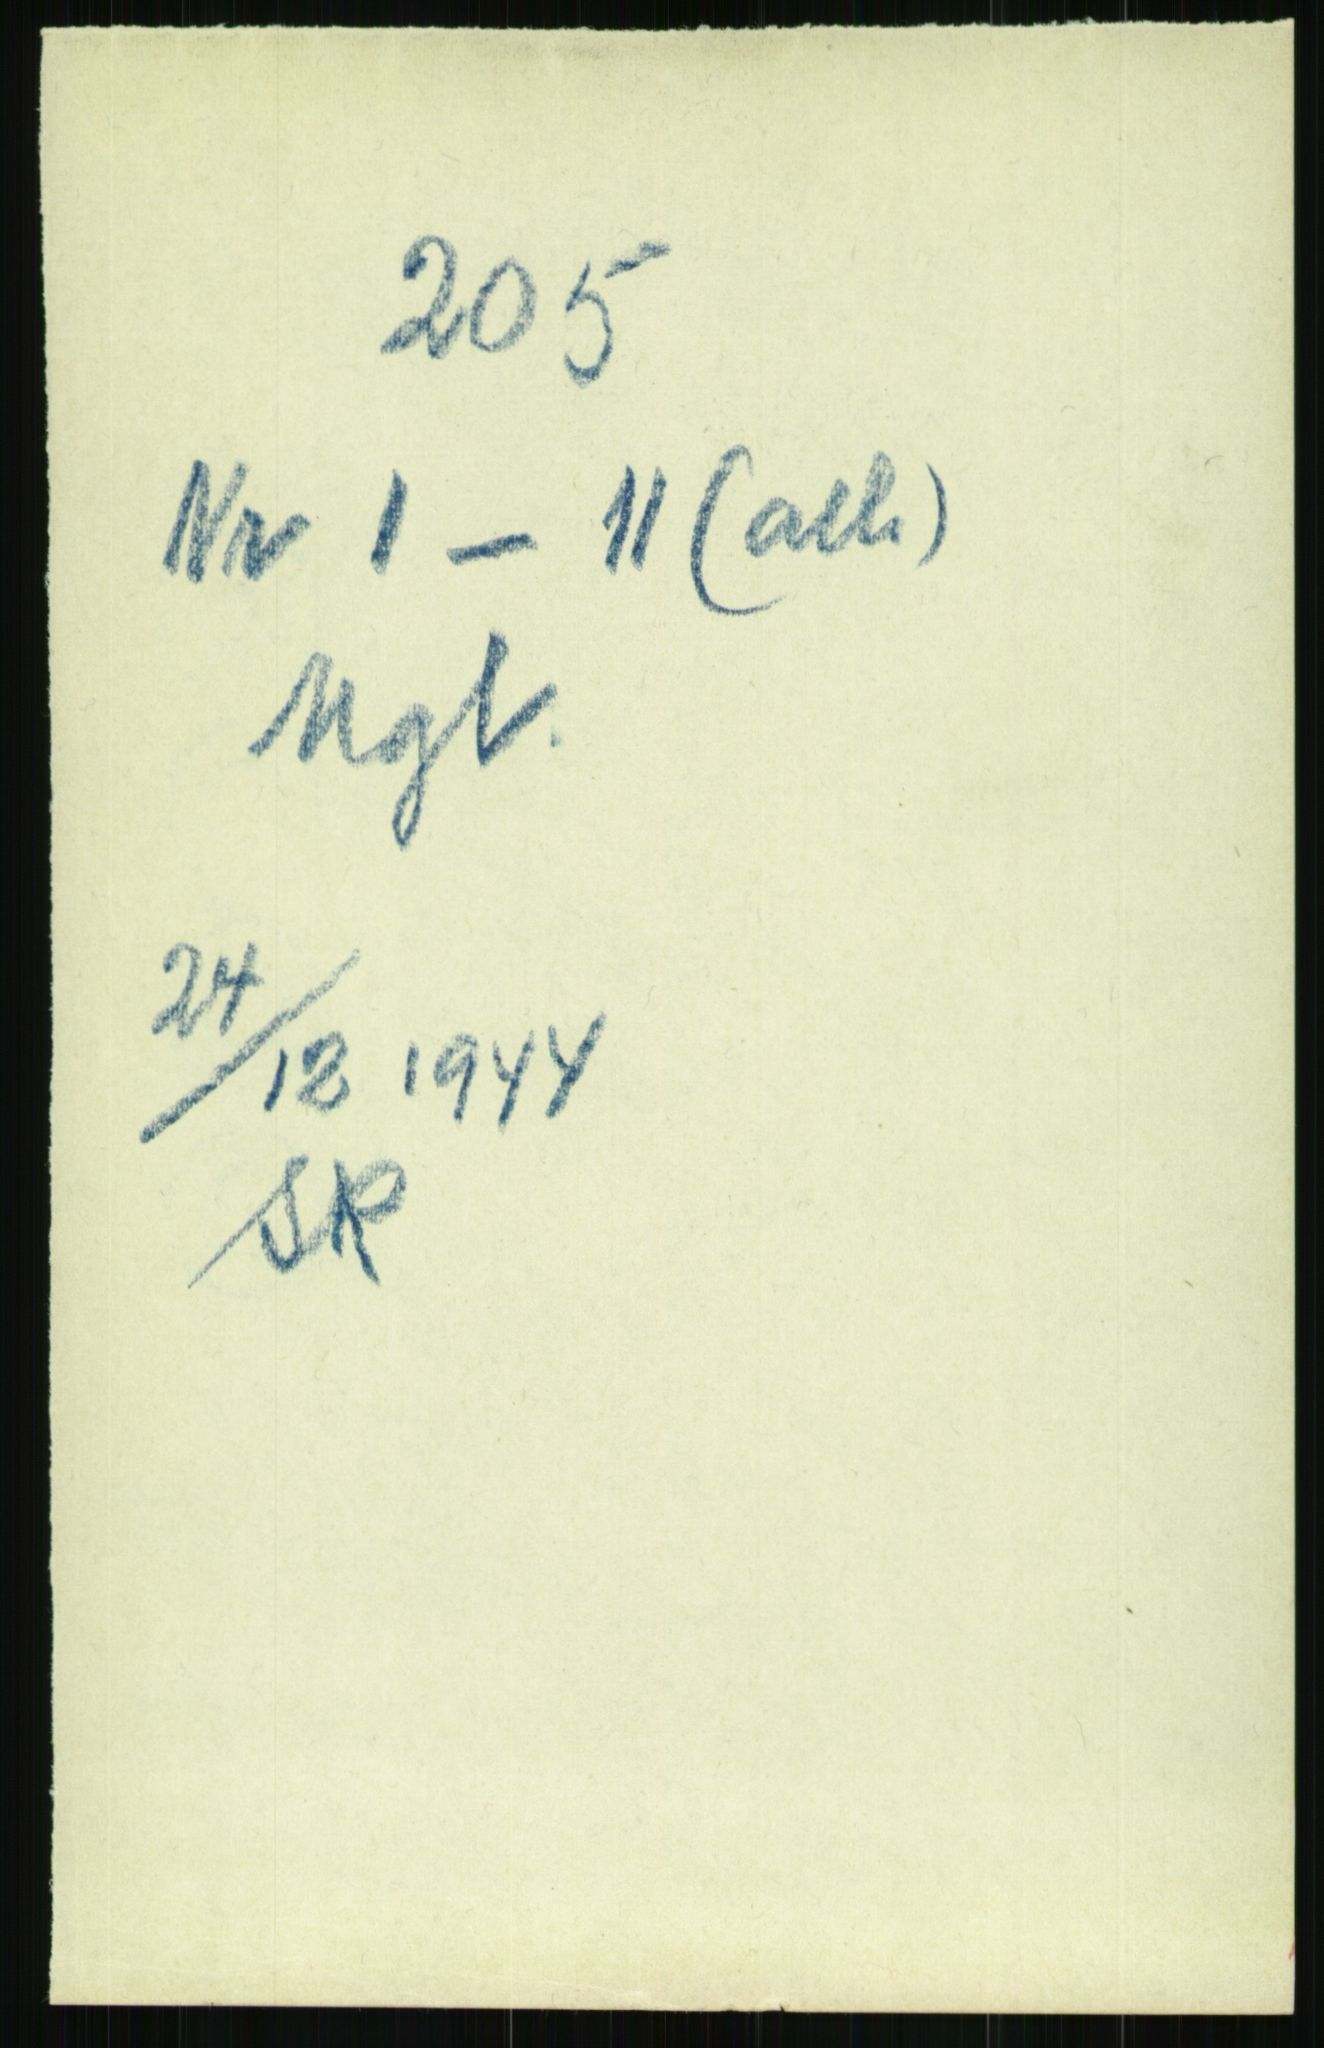 205
Nr 1 - 11 (alh)
Mgl.
24/12 1944
SR